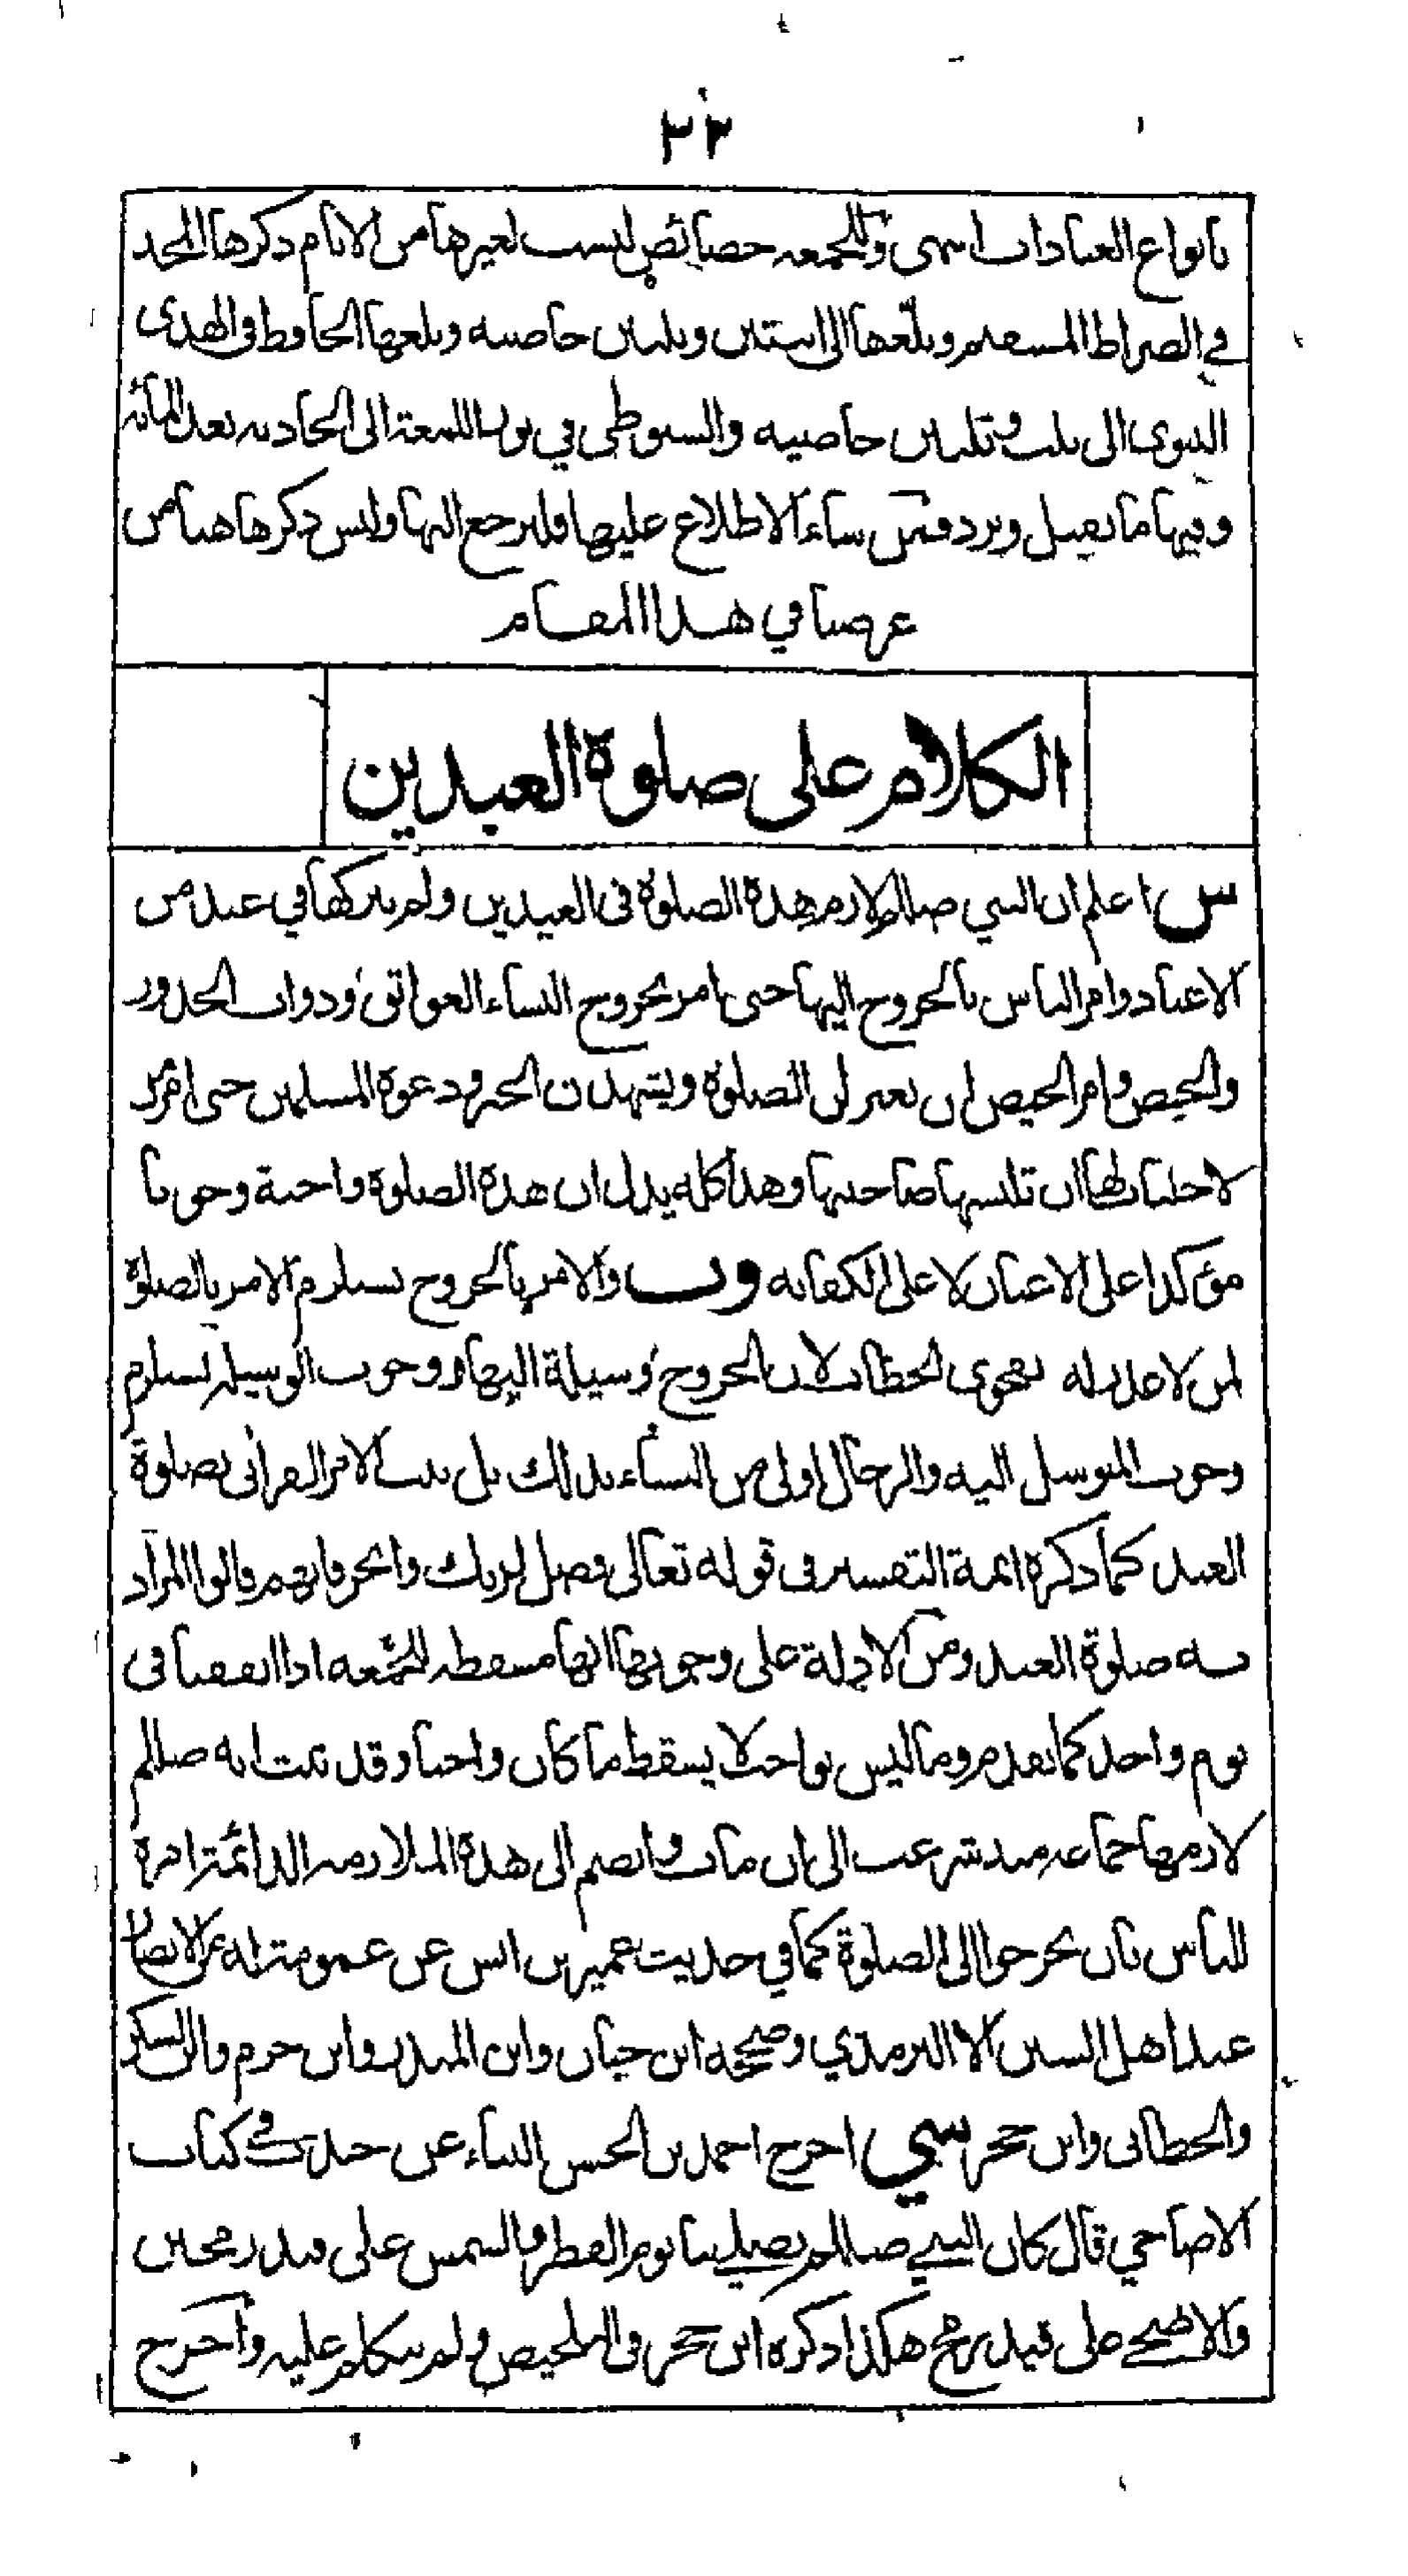 ٣٢
بانواع العبادات انتهى وللجمعة خصائص ليست لغيرها من الايام ذكرها المجد
في الصراط المستقيم وبلّغها الى اثنتين وثلثين خاصية وبلغها الحافظ في الهدى
النبوى الى ثلث وثلثين خاصية والسيوطي في نور اللمعة الى الحادية بعد المائة
وفيها ما يقبل ويرد فمن شاء الاطلاع عليها فليرجع اليها وليس ذكرها هنا من
غرضنا في هذا المقام
الكلام على صلوة العيدين
س اعلم ان النبي صللم لازم هذة الصلوة في العيدين ولم يتركها في عيد من
الاعياد وامر الناس بالخروج اليها حتى امر بخروج النساء العواتق وذوات الخدور
والحيض وامر الحيض ان يعتزلن الصلوة ويشهدن الخير ودعوة المسلمين حتى امر من
لا جلباب لها ان تلبسها صاحبتها وهذا كله يدل ان هذة الصلوة واجبة وجوبا
مؤكدا على الاعيان لا على الكفاية وب والامر بالخروج يستلزم الامر بالصلوة
لمن لا عذر له بفحوى الخطاب لان الخروج وسيلة اليها ووجوب الوسيلة يستلزم
وجوب المتوسل اليه والرجال اولى من النساء بذلك بل ثبت الامر القرآنى بصلوة
العيد كما ذكرة ائمة التفسير فى قوله تعالى فصل لربك وانحر فانهم قالوا المراد
به صلوة العيد ومن الادلة على وجوبها انها مسقطة للجمعة اذا اتفقتا فى
يوم واحد كما تقدم وما ليس بواجب لا يسقط ما كان واجبا وقد ثبت انه صللم
لازمها جماعة منذ شرعت الى ان مات وانضم الى هذة الملازمة الدائمة امرة
للناس بان يخرجوا الى الصلوة كما في حديث عمير بن انس عن عمومة له من الانصار
عند اهل السنن الا الترمذي وصححه ابن حبان وابن المنذر وابن حزم وابن السكن
والخطابى وابن حجر سي اخرج احمد بن الحسن البناء عن جندب في كتاب
الاضاحي قال كان النبي صللم يصلي بنا يوم الفطر والشمس على قيد رمحين
والاضحى على قيد رمح هكذا ذكره ابن حجر فى التلخيص ولم يتكلم عليه واخرج